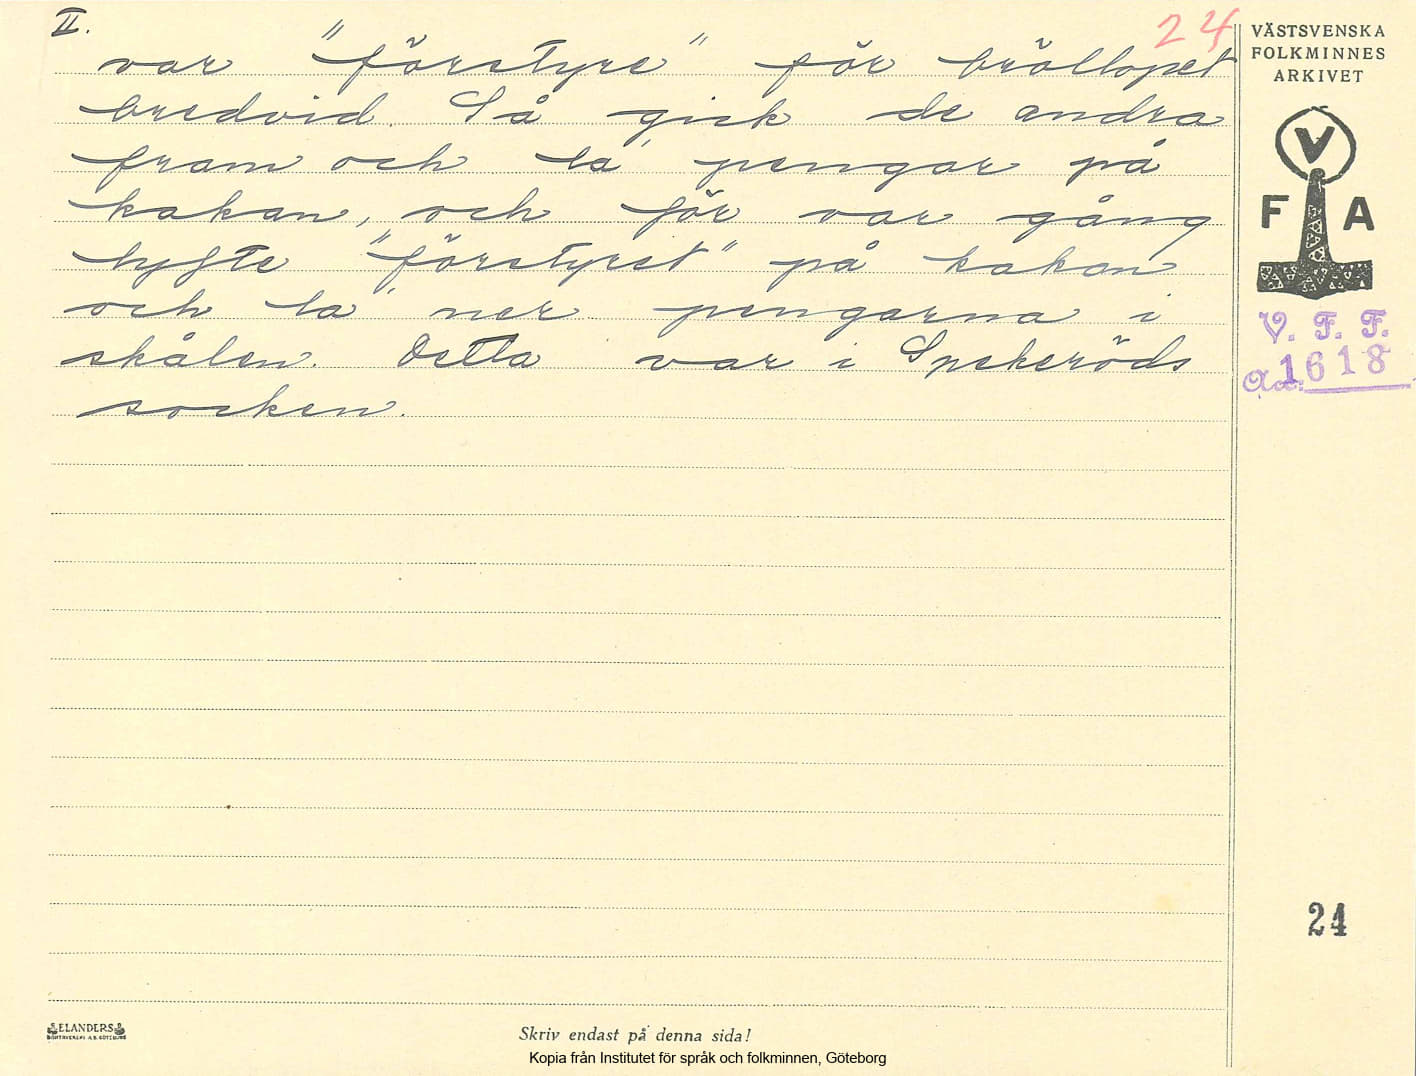 II.
24
var "förstyre" för bröllopet
bredvid. Så gick de andra
fram och la' pengar på
kakan, och för var gång
lyfte "förstyret" på kakan
och la' ner pengarna i
skålen. Detta var i Spekeröds
socken.
VÄSTSVENSKA
FOLKMINNES
ARKIVET
V
F A
V. F. F.
1618
24
ELANDERS
Skriv endast på denna sida!
Kopia från Institutet för språk och folkminnen, Göteborg